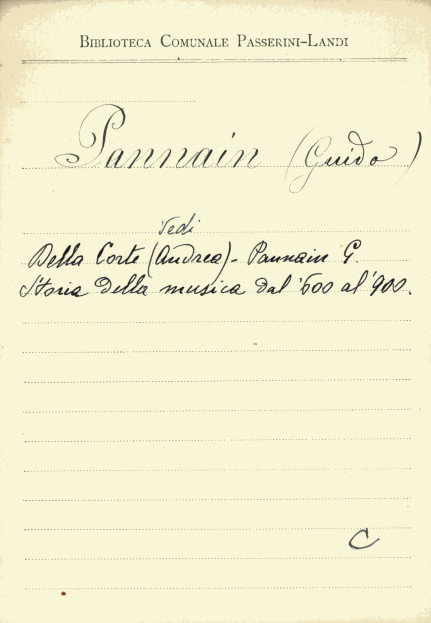 Biblioteca Comunale Passerini-Landi
Pannain (Guido)
Vedi
Della Corte (Andrea) - Pannain G.
Storia della musica dal '600 al '900.
C